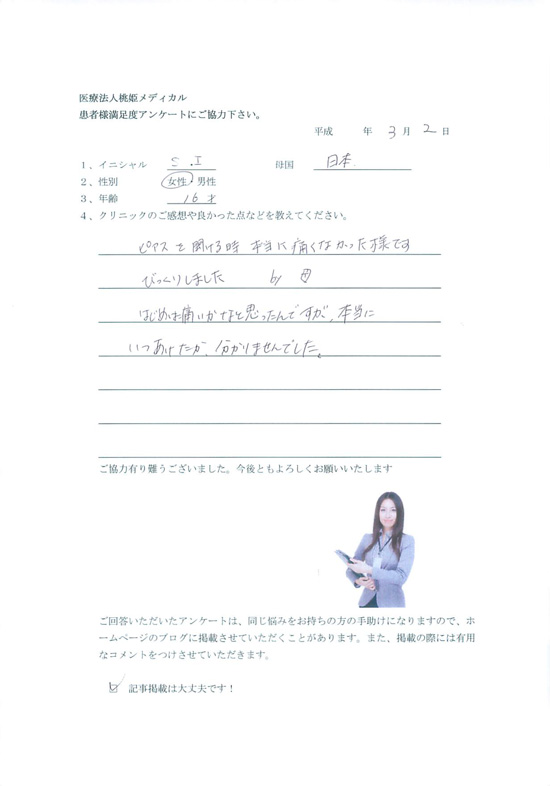 医療法人桃姫メディカル
患者様満足度アンケートにご協力下さい。
平成 年 3 月 2 日
1、イニシャル S.I 母国 日本
2、性別 女性・男性
3、年齢 16才
4、クリニックのご感想や良かった点などを教えてください。
ピアスを開ける時 本当に痛くなかった様です
びっくりしました by 母
はじめは痛いかなと思ったんですが、本当に
いつあけたか、分かりませんでした。
ご協力有り難うございました。今後ともよろしくお願いいたします
ご回答いただいたアンケートは、同じ悩みをお持ちの方の手助けになりますので、ホ
ームページのブログに掲載させていただくことがあります。また、掲載の際には有用
なコメントをつけさせていただきます。
☑ 記事掲載は大丈夫です！